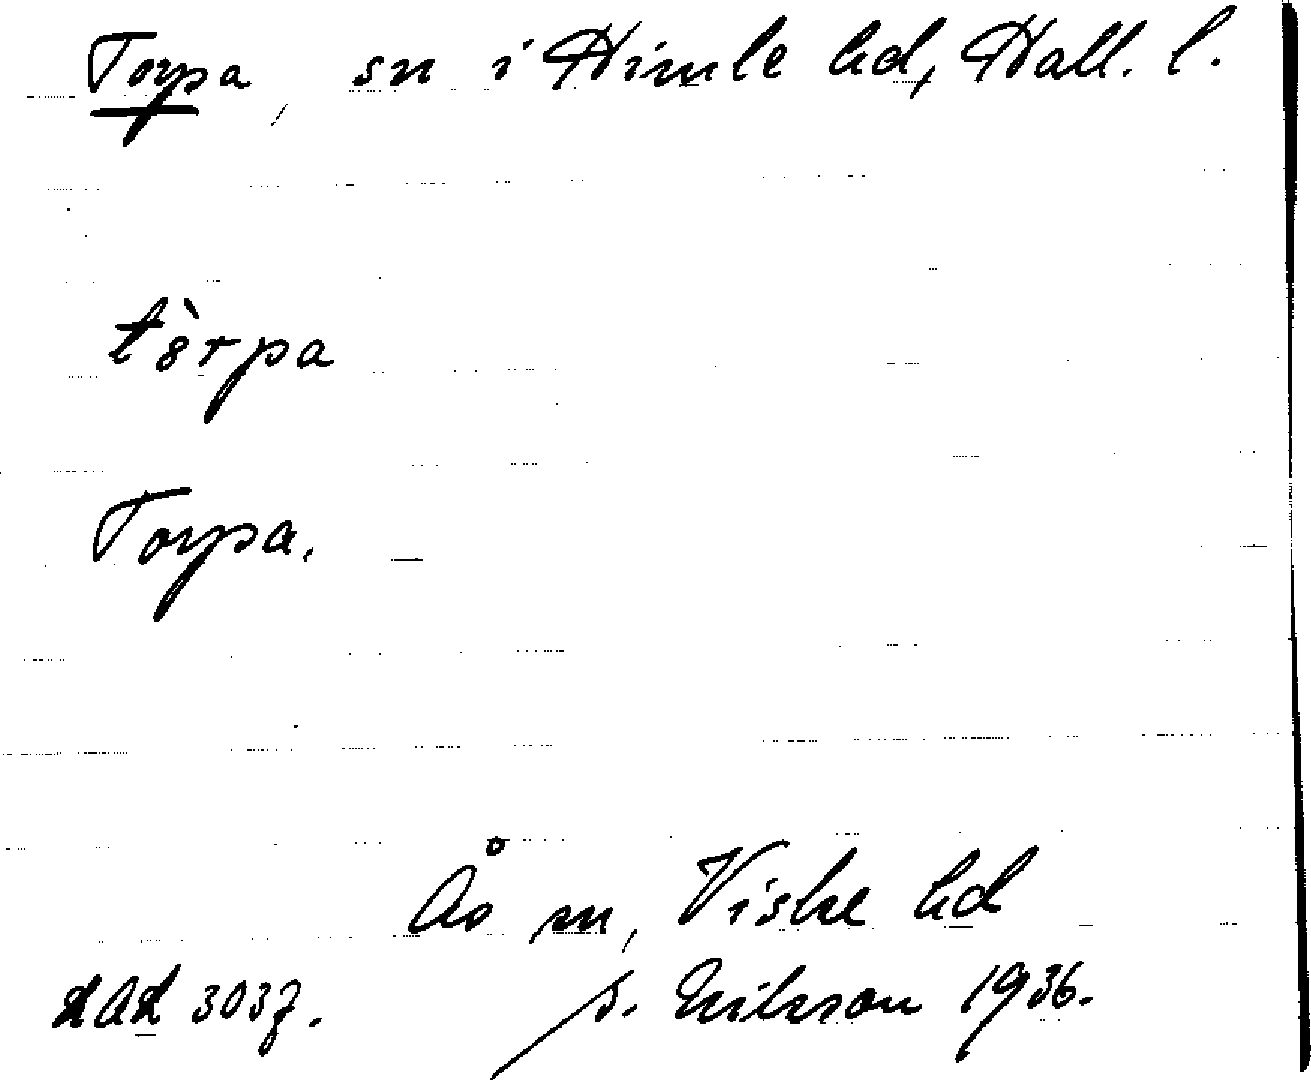 Torpa, sn i Himle hd, Hall. l.
tè̀rpa
Torpa.
Ås sn, Viske hd
dAd 3037. S. Eriksson 1936.